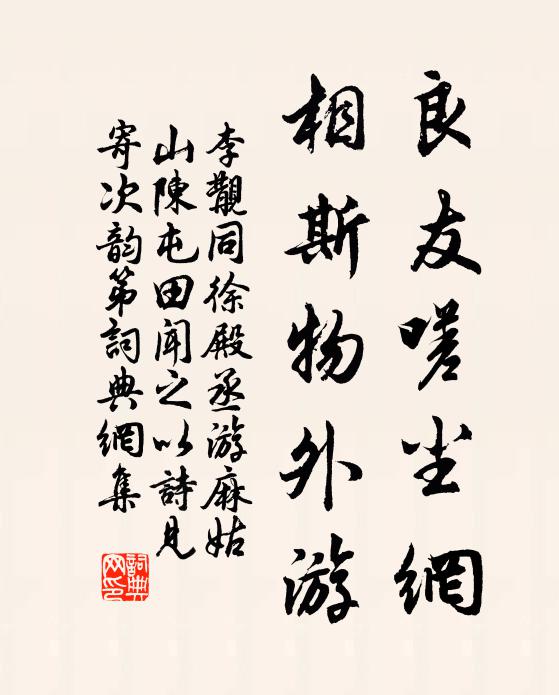 良友嗟尘網
相斯物外游
李覯同徐殿丞游麻姑
山陳屯田闻之以詩見
寄次韵第詞典網集
詞典网印